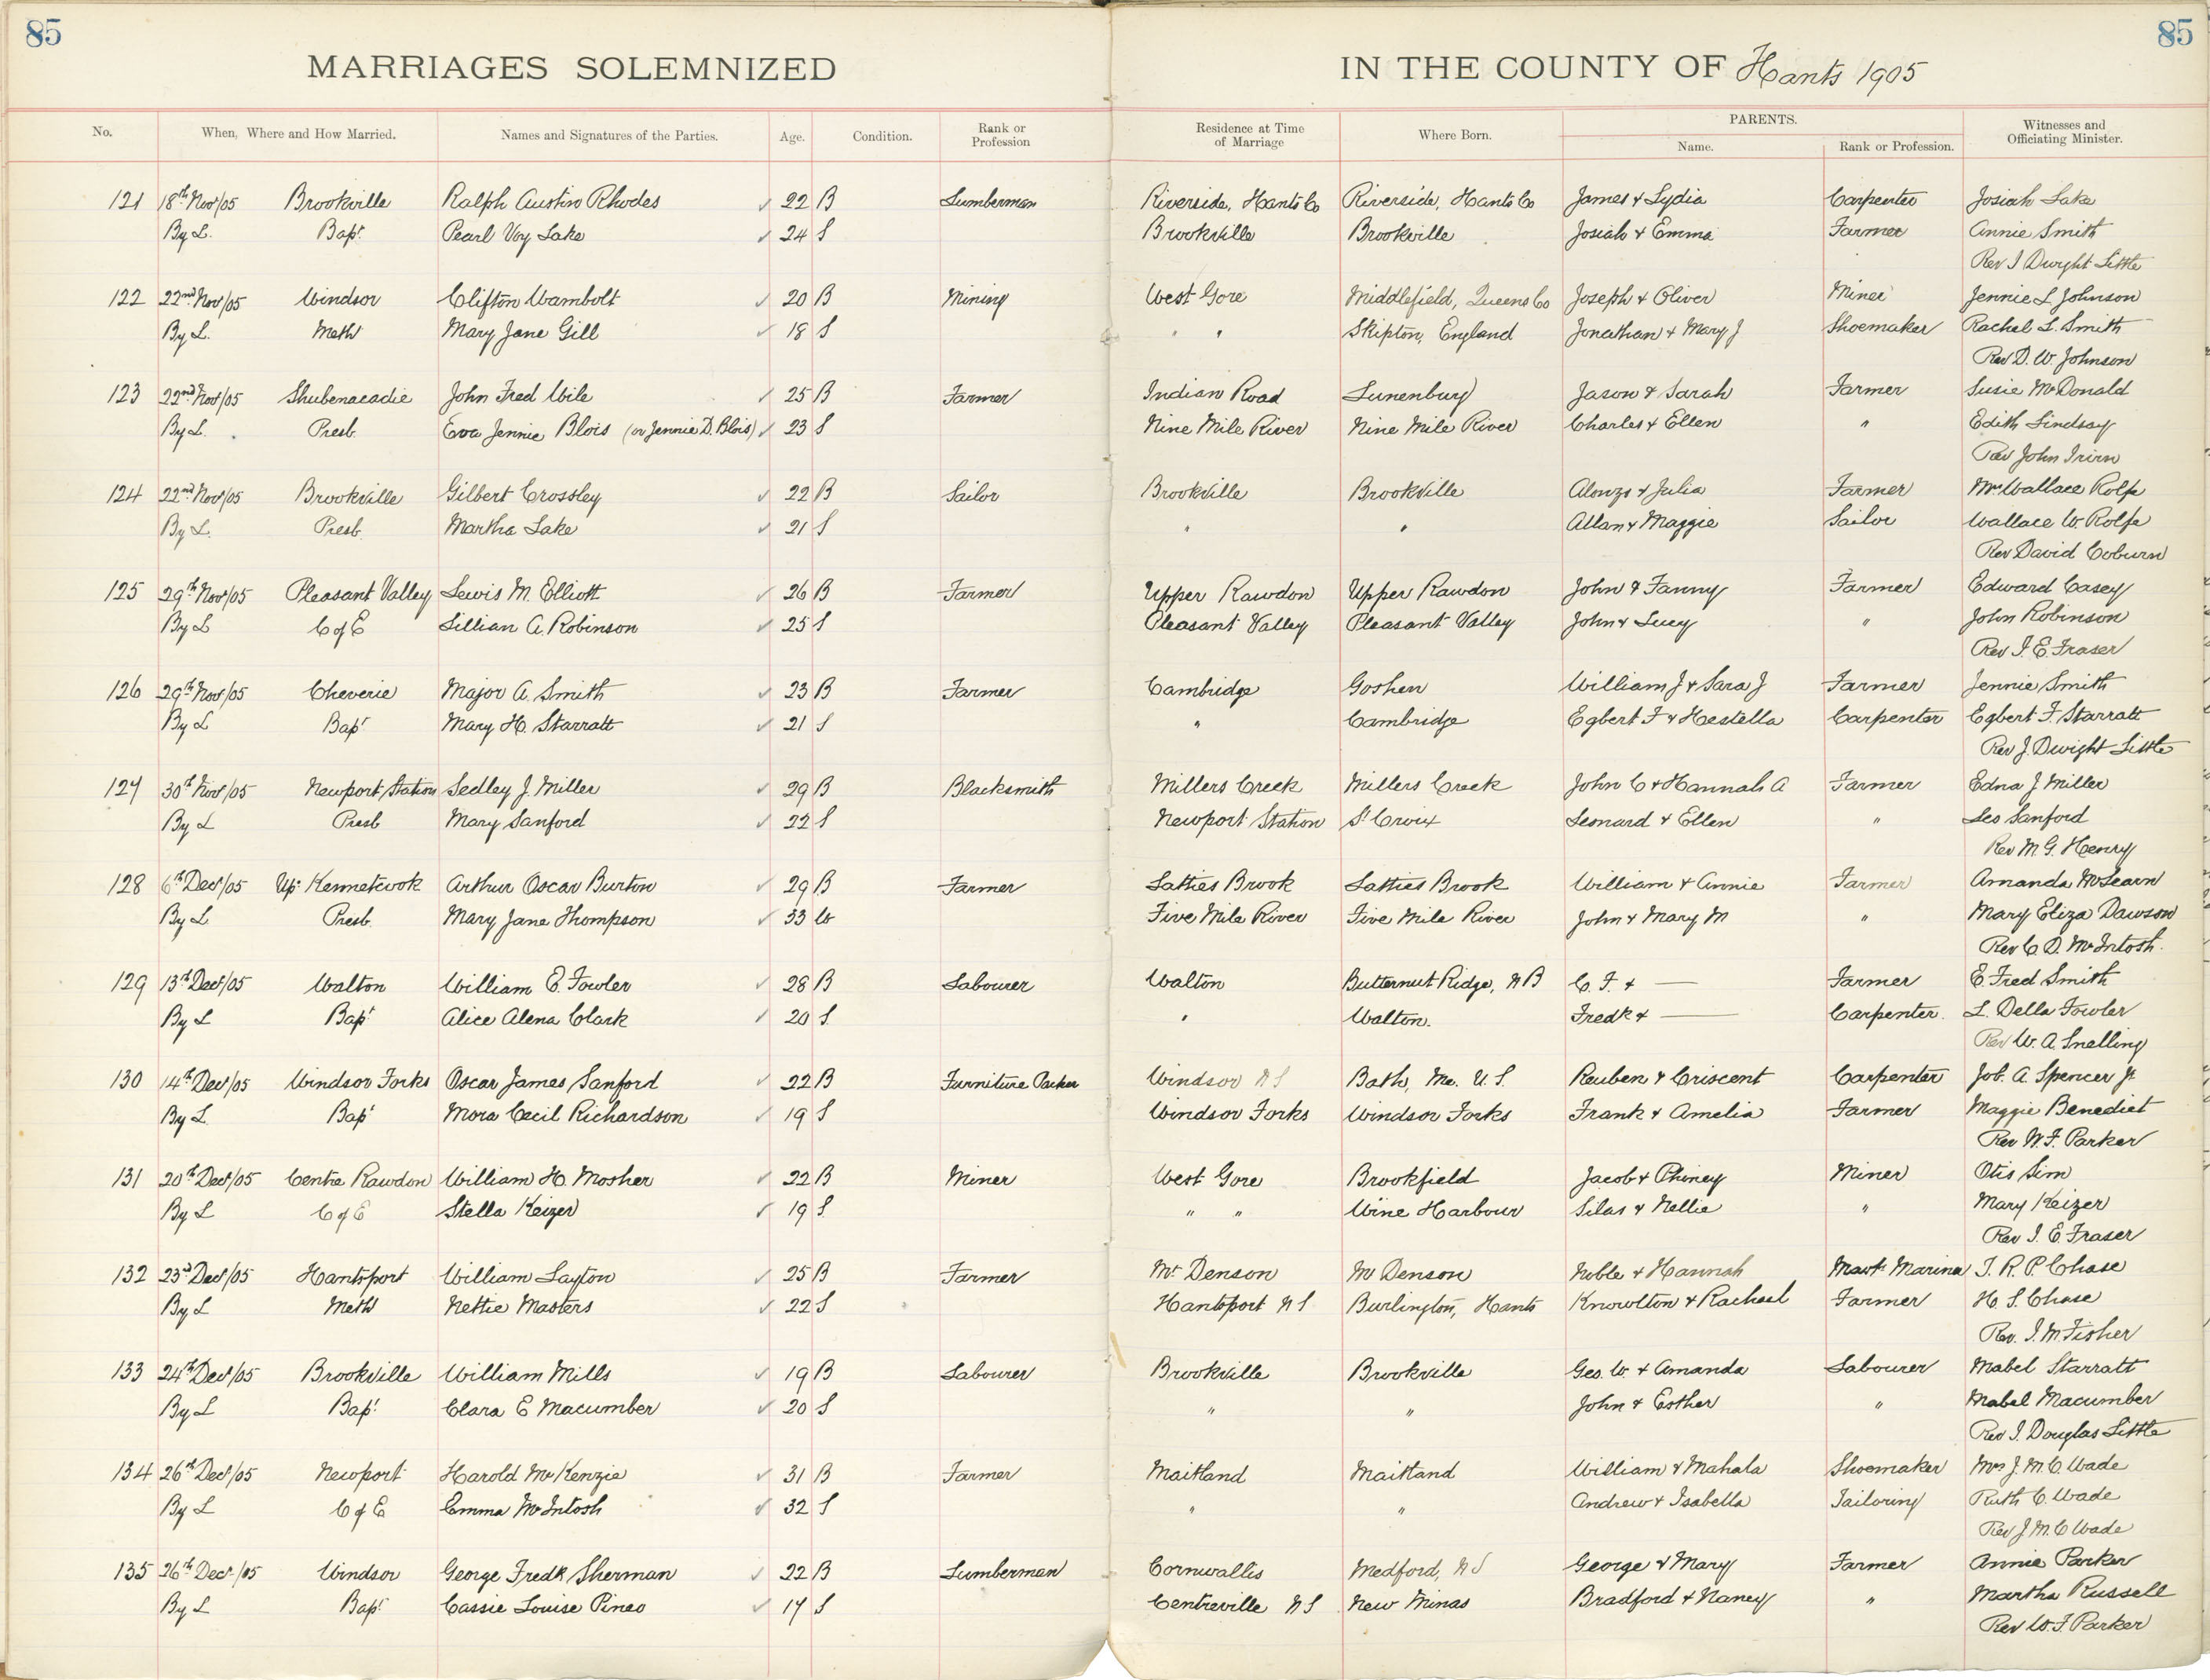 85
85
MARRIAGES SOLEMNIZED IN THE COUNTY OF Hants 1905
No. When, Where and How Married. Names and Signatures of the Parties. Age. Condition. Rank or Profession Residence at Time of Marriage Where Born. PARENTS. Name. Rank or Profession. Witnesses and Officiating Minister.
121 18th Nov/05 Brookville Ralph Austin Rhodes ✓ 22 B Lumberman Riverside, Hants Co Riverside, Hants Co James & Lydia Carpenter Josiah Lake
By L. Bapt. Pearl Voy Lake ✓ 24 S Brookville Brookville Josiah & Emma Farmer Annie Smith
Rev I Dwight Little
122 22nd Nov/05 Windsor Clifton Wambolt ✓ 20 B Mining West Gore Middlefield, Queens Co Joseph & Oliver Miner Jennie L Johnson
By L. Meth Mary Jane Gill ✓ 18 S " " Skipton, England Jonathan & Mary J Shoemaker Rachel L. Smith
Rev D. W. Johnson
123 22nd Nov/05 Shubenacadie John Fred Wile ✓ 25 B Farmer Indian Road Lunenburg Jason & Sarah Farmer Susie McDonald
By L. Presb. Eva Jennie Blois (or Jennie D. Blois) ✓ 23 S Nine Mile River Nine Mile River Charles & Ellen " Edith Lindsay
Rev John
124 22nd Nov/05 Brookville Gilbert Crossley ✓ 22 B Sailor Brookville Brookville Alonzo & Julia Farmer Mrs Wallace Rolfe
By L. Presb. Martha Lake ✓ 21 S " " Allan & Maggie Sailor Wallace W. Rolfe
Rev David Coburn
125 29th Nov/05 Pleasant Valley Lewis M. Elliott ✓ 26 B Farmer Upper Rawdon Upper Rawdon John & Fanny Farmer Edward Casey
By L C of E Lillian A. Robinson ✓ 25 S Pleasant Valley Pleasant Valley John & Lucy " John Robinson
Rev I. E. Fraser
126 29th Nov/05 Cheverie Major A. Smith ✓ 23 B Farmer Cambridge Goshen William J & Sara J Farmer Jennie Smith
By L Bapt Mary H. Starratt ✓ 21 S " Cambridge Egbert F & Hestella Carpenter Egbert F. Starratt
Rev J. Dwight Little
127 30th Nov/05 Newport Station Sedley J. Miller ✓ 29 B Blacksmith Millers Creek Millers Creek John C & Hannah A Farmer Edna J Miller
By L Presb Mary Sanford ✓ 22 S Newport Station St Croix Leonard & Ellen " Leo Sanford
Rev M. G. Henry
128 6th Dec/05 Up. Kennetcook Arthur Oscar Burton ✓ 29 B Farmer Latties Brook Latties Brook William & Annie Farmer Amanda McLearn
By L Presb. Mary Jane Thompson ✓ 33 W Five Mile River Five Mile River John & Mary M " Mary Eliza Dawson
Rev C. D. McIntosh.
129 13th Dec/05 Walton William E. Fowler ✓ 28 B Labourer Walton Butternut Ridge, N B C. F. & — Farmer E. Fred Smith
By L Bapt Alice Alena Clark ✓ 20 S " Walton. Fredk & — Carpenter. L. Della Fowler
Rev W. A. Snelling
130 14th Dec/05 Windsor Forks Oscar James Sanford ✓ 22 B Furniture Packer Windsor N S Bath, Me. U. S. Reuben & Criscent Carpenter Job. A. Spencer Jr
By L. Bapt Mora Cecil Richardson ✓ 19 S Windsor Forks Windsor Forks Frank & Amelia Farmer Maggie Benedict
Rev W. F. Parker
131 20th Dec/05 Centre Rawdon William H. Mosher ✓ 22 B Miner West Gore Brookfield Jacob & Phiney Miner Otis Sim
By L C of E Stella Keizer ✓ 19 S " " Wine Harbour Silas & Nellie " Mary Keizer
Rev I. E. Fraser
132 23rd Dec/05 Hantsport William Layton ✓ 25 B Farmer Mt Denson Mt Denson Noble & Hannah Mast. Mariner T. R. P. Chase
By L Meth Nettie Masters ✓ 22 S Hantsport N S. Burlington, Hants Knowlton & Rachael Farmer H. S. Chase
Rev. J. M Fisher
133 24th Dec/05 Brookville William Mills ✓ 19 B Labourer Brookville Brookville Geo. W. & Amanda Labourer Mabel Starratt
By L Bapt Clara E Macumber ✓ 20 S " " John & Esther " Mabel Macumber
Rev I. Douglas Little
134 26th Dec/05 Newport Harold McKenzie ✓ 31 B Farmer Maitland Maitland William & Mahala Shoemaker Mrs J. M. C. Wade
By L C of E Emma McIntosh ✓ 32 S " " Andrew & Isabella Tailoring Ruth C. Wade
Rev J. M. C Wade
135 26th Dec/05 Windsor George Fredk Sherman ✓ 22 B Lumberman Cornwallis Medford, N S George & Mary Farmer Annie Parker
By L Bapt Cassie Louise Pineo ✓ 17 S Centreville N S New Minas Bradford & Nancy " Martha Russell
Rev W. F. Parker